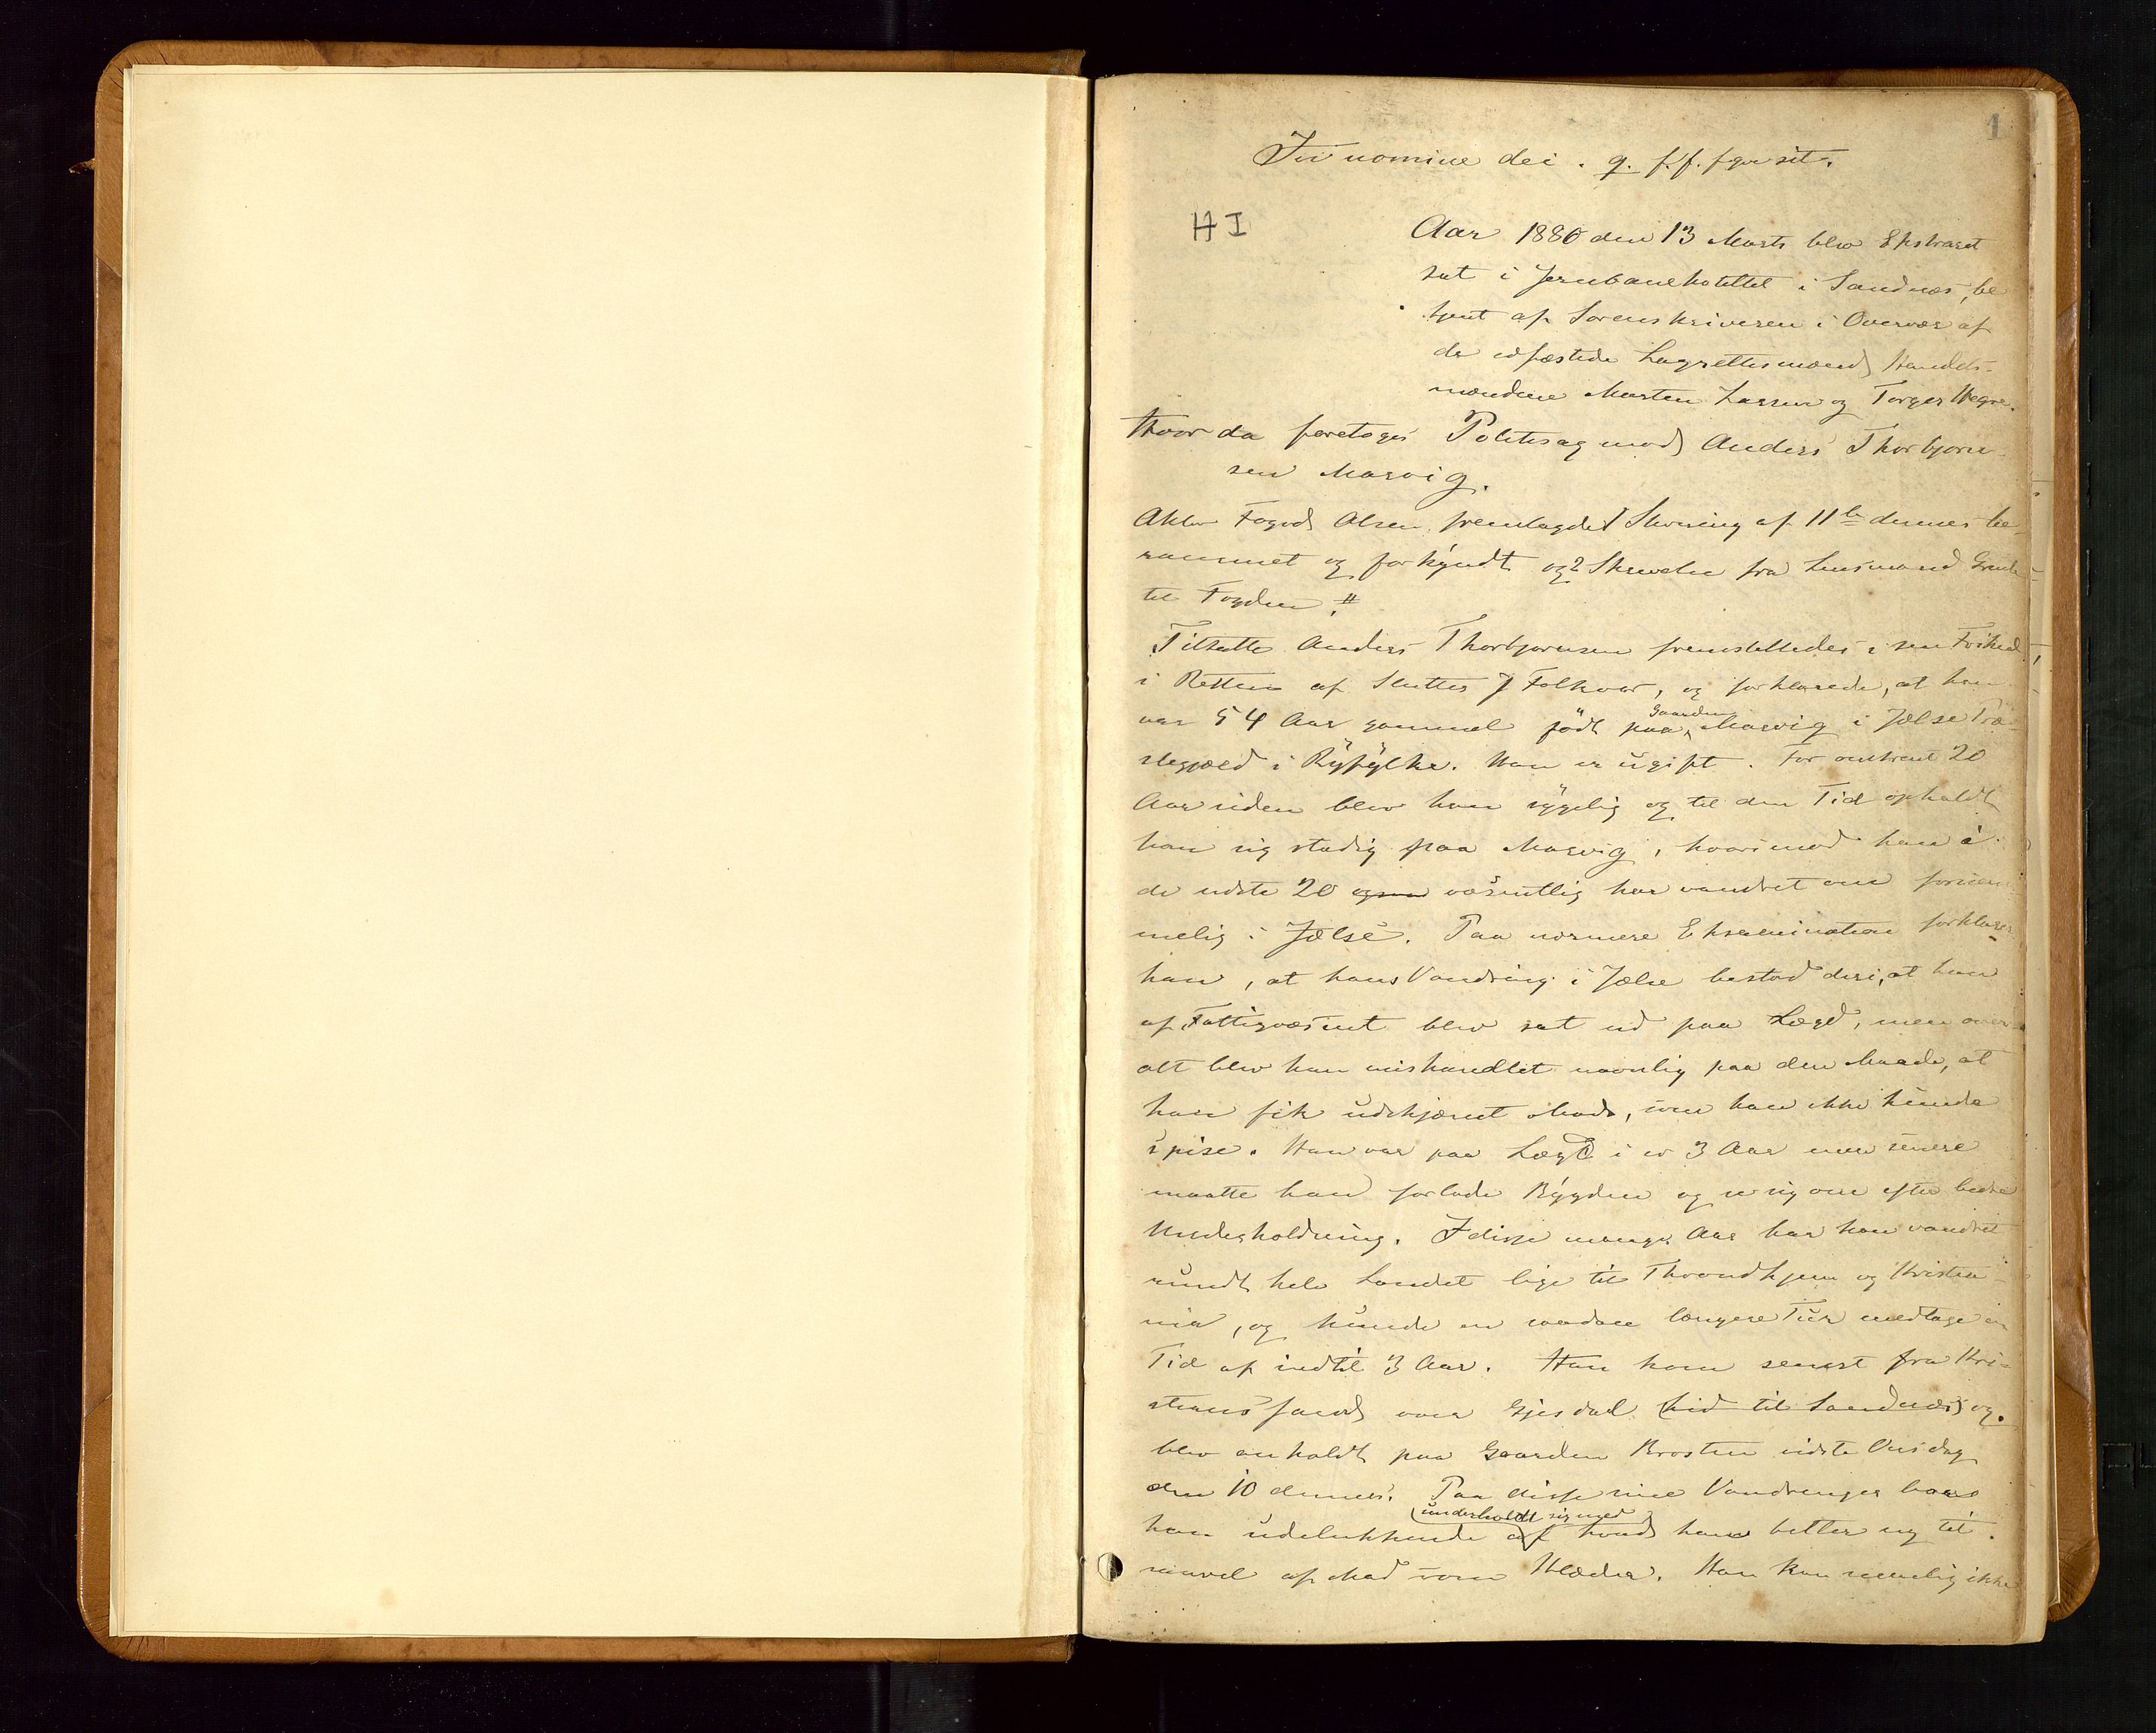 1
In nomine dei. q. f. f. f que sit.
H I
Aar 1880 den 13 Marts blev Ekstraret
sat i Jernbanehotellet i Sandnæs, be
tjent af Sorenskriveren i Overvær af
de edfæstede Lagrettesmænd Handels-
mændene Morten Larsen og Torger Hegre.
Hvor da foretoges Politisag mod Anders Thorbjørn-
sen Marvig.
Aktor Foged Olsen fremlagde 1 Stevning af 11te dennes be-
rammet og forkyndt og 2 Skrivelse fra Lensmand
til Fogden #
Tiltalte Anders Thorbjørnsen fremstilledes i sin Frihed
i Retten af Slutter J Folkvor, og forklarede, at han
var 54 Aar gammel født paa Gaarden Marvig i Jelse Præ-
stegjæld i Ryfylke. Han er ugift. For omtrent 20
Aar siden blev han sygelig og til den Tid opholdt
han sig stadig paa Marvig, hvorimod han i
de sidste 20 væsentlig har vandret om fornem-
melig i Jelse. Paa nærmere Eksamination forklarer
han, at hans Vandring i Jelse bestod deri, at han
af Fattigvæsnet blev sat ud paa Lægd, men over-
alt blev han mishandlet navnlig paa den Maade, at
han fik udskjæmt Mad, som han ikke kunde
spise. Han var paa Lægd i en 3 Aar men senere
maatte han forlade Bygden og se sig om efter bedre
Underholdning. I disse mange Aar har han vandret
rundt hele Landet lige til Throndhjem og Kristia-
nia, og kunde en saadan længere Tur medtage en
Tid af indtil 3 Aar. Han kom senest fra Kri-
stianssand over Gjesdal (hid til Sandnæs) og
blev anholdt paa Gaarden Brosten sidste Onsdag
den 10 dennes. Paa disse sine Vandringer har
han udelukkende underholdt sig med hvad han betler sig til
saavel af Mad som Klæder. Han kan nemlig ikke